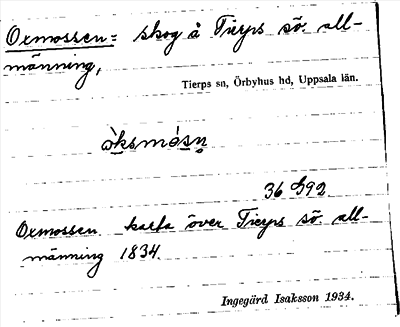 Oxmossen: skog å Tierps sö. all-
männing,
Tierps sn, Örbyhus hd, Uppsala län.
òksmósn̥
36 G92
Oxmossen karta över Tierps sö. all-
männing 1834.
Ingegärd Isaksson 1934.